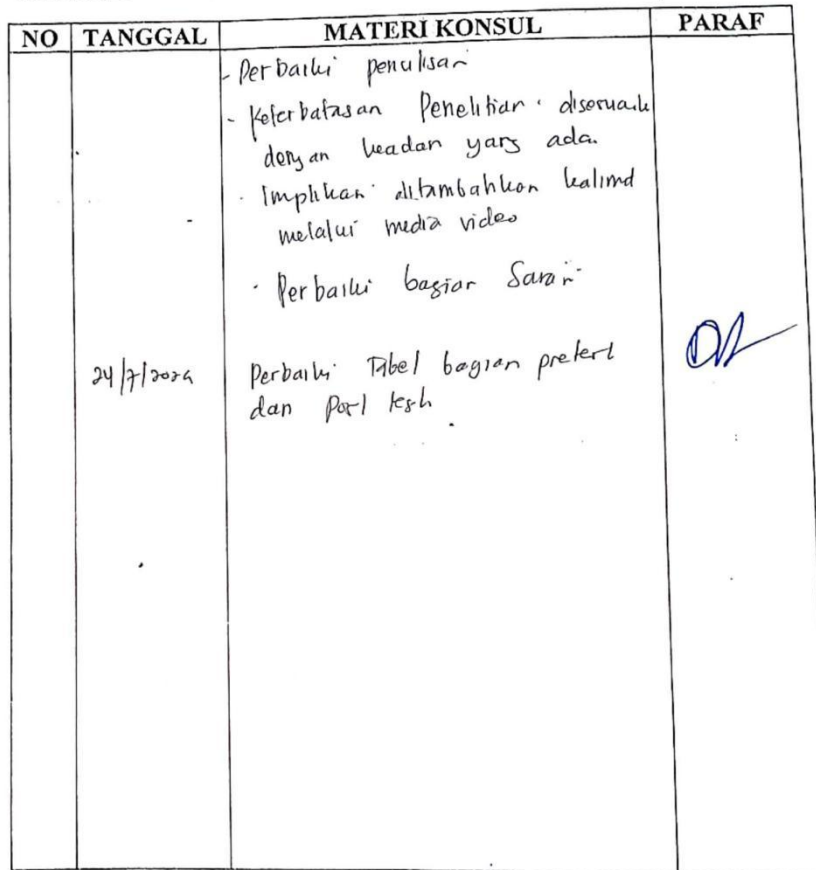 NO TANGGAL MATERI KONSUL PARAF
- Perbaiki penulisan
- Keterbatasan Penelitian disesuaik
dengan keadan yang ada.
- Implikan ditambahkan kalimd
melalui media video
- Perbaiki bagian Saran
24/7/2024 Perbaiki Tabel bagian pretest
dan Post test